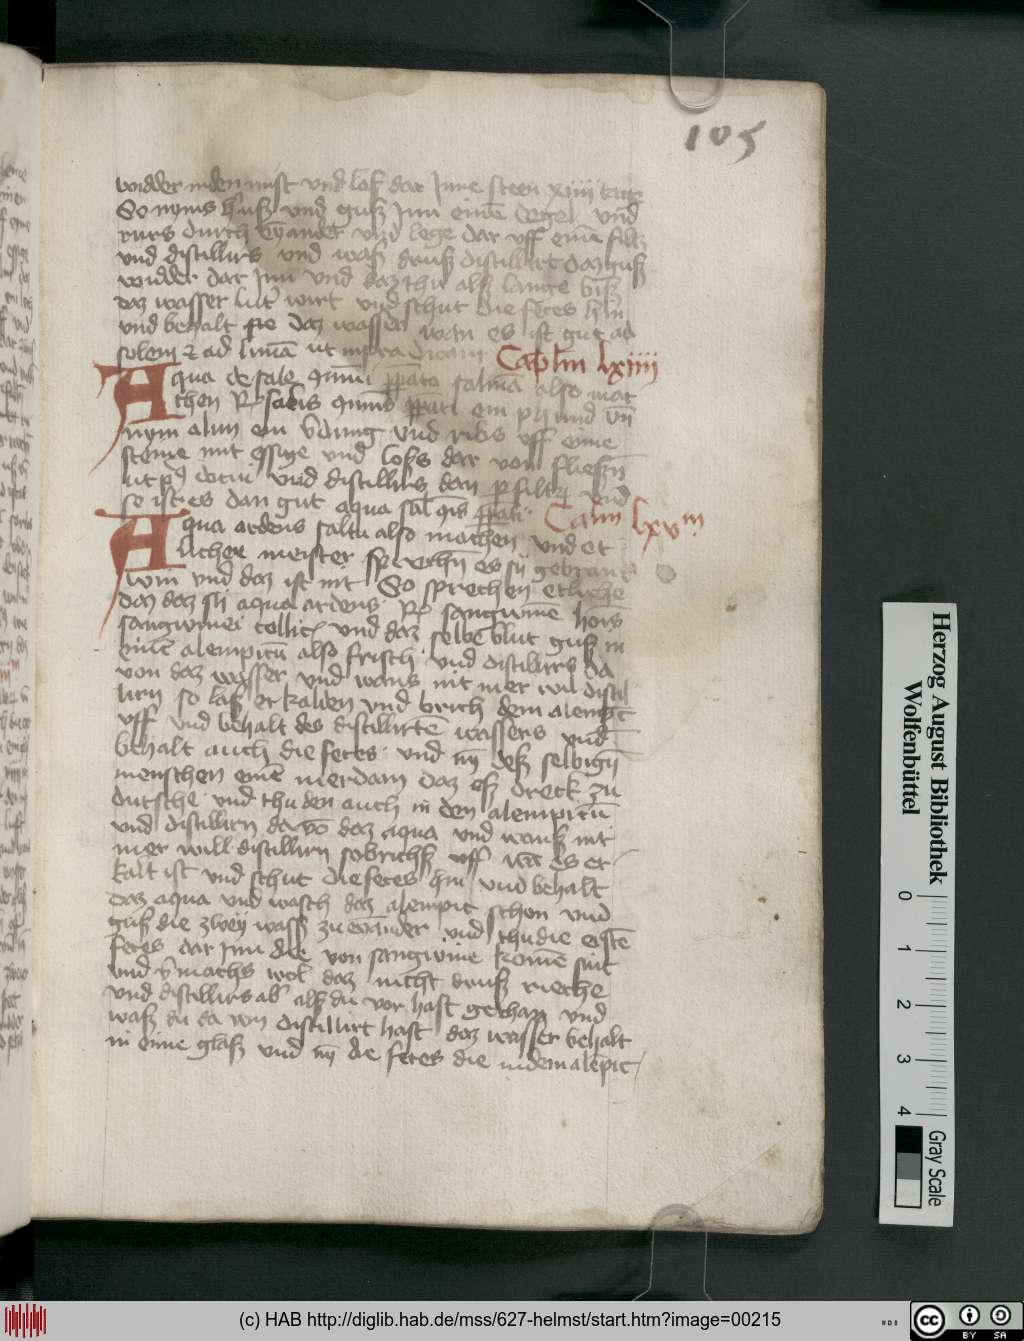 105
widder in den mist vnd laß dar Jnne steen xiiii tage
So nyms hˀuß vnd guß Jnn eine degel vnd
rurs durch eynander vnd lege dar vff eine filtz
vnd distillirs vnd waß druß distillirt daz guß
widder dar Jnn vnd daz thu alß lange biß
daz wasser luter wirt vnd schut die feces hin
vnd behalt sie daz wasser wan es ist gut ad
solem & ad lunā ut infra dicam Caplm lxiiii
Aqua de sale ꝯmūi p̄pato salmā also mac
chen Rͤ salis ꝯmūis p̄pati ein vnd vn
nym alun ein vnd ribs vff eine
steine mit essige vnd loß dar von fließn
vnd distillirs dan p filtrū vnd
so ist es dan gut aqua sal ꝯis p̄pati Capm lxvm
Aqua ardens saltu also machen vnd et
lichen meister sprechn es sy gebrant
win vnd daz ist nit So sprechen etliche
daz daz sy aqua ardens Rͤ sangwine hois
sangwinei collici vnd daz selbe blut guß in
eine alempicū also frisch vnd distillirs da
von daz wasser vnd wans nit mer wil distil
lirn so laß erkalden vnd brich dem alempic
vff vnd behalt des distillirtē wassers vnd
behalt auch die feces vnd nȳ deß selbign
menschen eine merdam daz eß dreck zu
dutsche vnd thu den auch in den alempicū
vnd distillirn da vō daz aqua vnd wanß nit
mer will distillirn so brichß vff wā es er
kalt ist vnd schut die feces hin vnd behalt
daz aqua vnd wasch daz alempic schon vnd
guß die zwey wasß zu eynander vnd thu die ersten
feces dar Jnn die von sangwine komē sint
vnd vˀmachs wol daz nicht druß rieche
vnd distillirs abˀ alß du vor hast gethan vnd
waß du da von distillirt hast daz wasser behalt
in eine glaß vnd nȳ die feces die in dem alepic
Herzog August Bibliothek
Wolfenbüttel
0 1 2 3 4
Gray Scale
(c) HAB http://diglib.hab.de/mss/627-helmst/start.htm?image=00215
cc BY SA